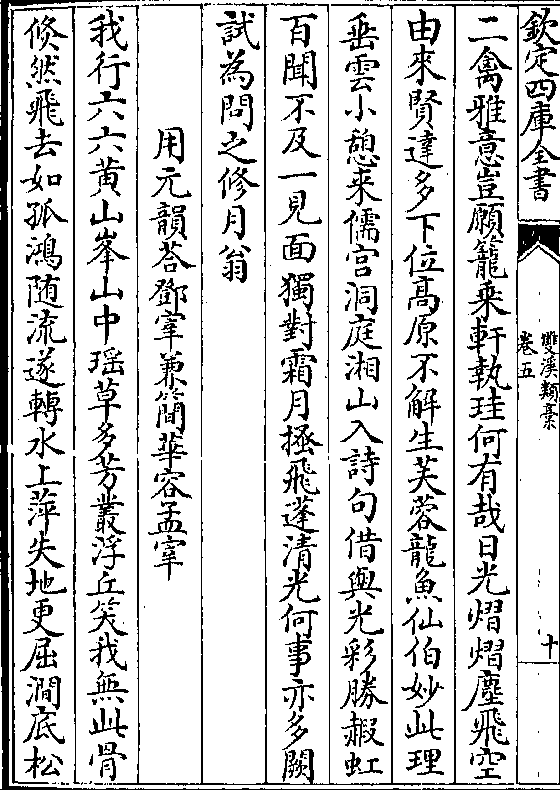 欽定四庫全書
雙溪類稾
卷五
十
二禽雅意豈願籠乗軒執珪何有哉日光熠熠塵飛空
由來賢達多下位髙原不解生芙蓉龍魚仙伯妙此理
垂雲小憩来儒宫洞庭湘山入詩句借與光彩勝赮虹
百聞不及一見面獨對霜月拯飛蓬清光何事亦多闕
試為問之修月翁
用元韻荅鄧宰兼簡華容孟宰
我行六六黄山峯山中瑶草多芳叢浮丘笑我無此骨
倐然飛去如孤鴻随流遂轉水上萍失地更屈澗底松